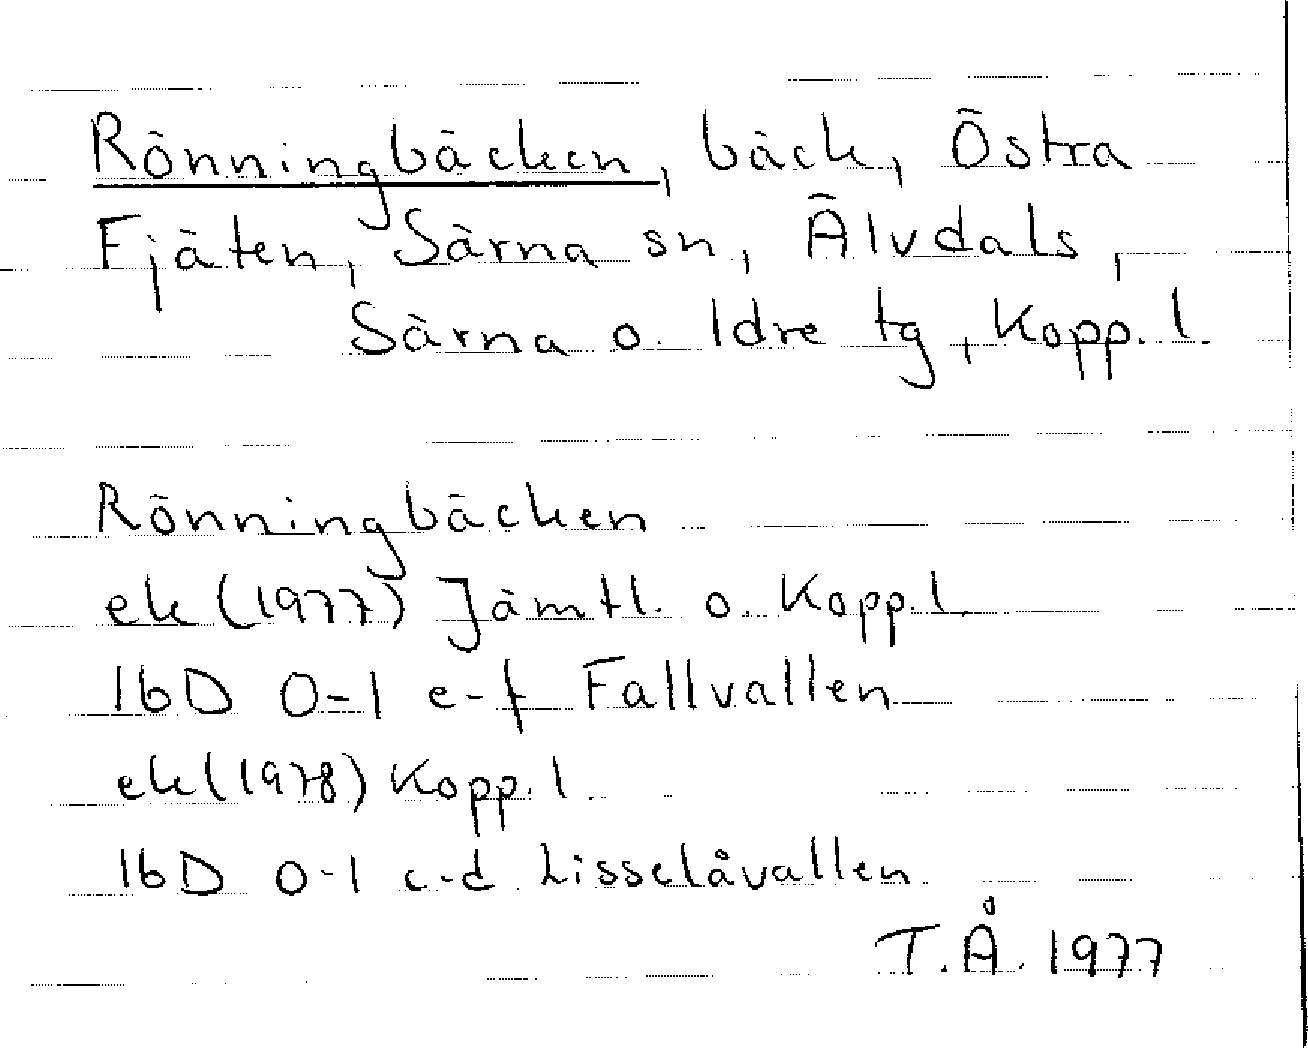 Rönningbäcken, bäck, Östra
Fjäten, Särna sn, Älvdals,
Särna o. Idre tg, Kopp. l.
Rönningbäcken
ek (1977) Jämtl. o. Kopp. l.
16D 0-1 e-f Fallvallen
ek (1978) Kopp. l.
16D 0-1 c-d Lisselåvallen
T.Å. 1977